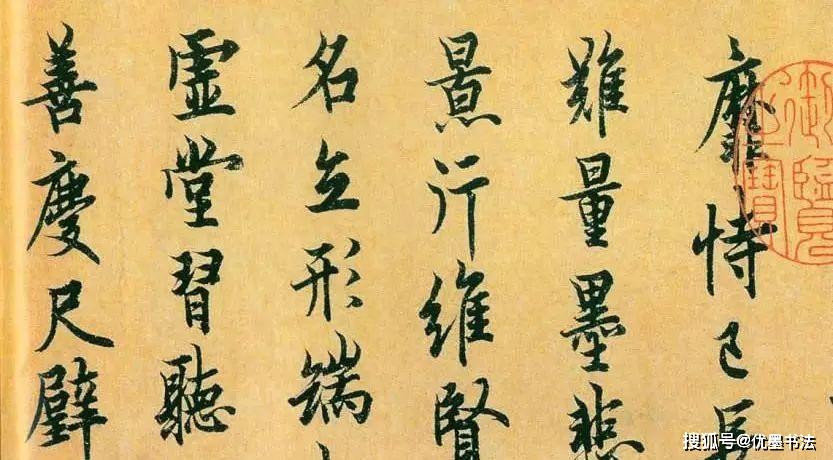 靡恃己長
難量墨悲
景行維賢
名立形端
虛堂習聽
善慶尺璧
御覽之寶
搜狐号@优墨书法